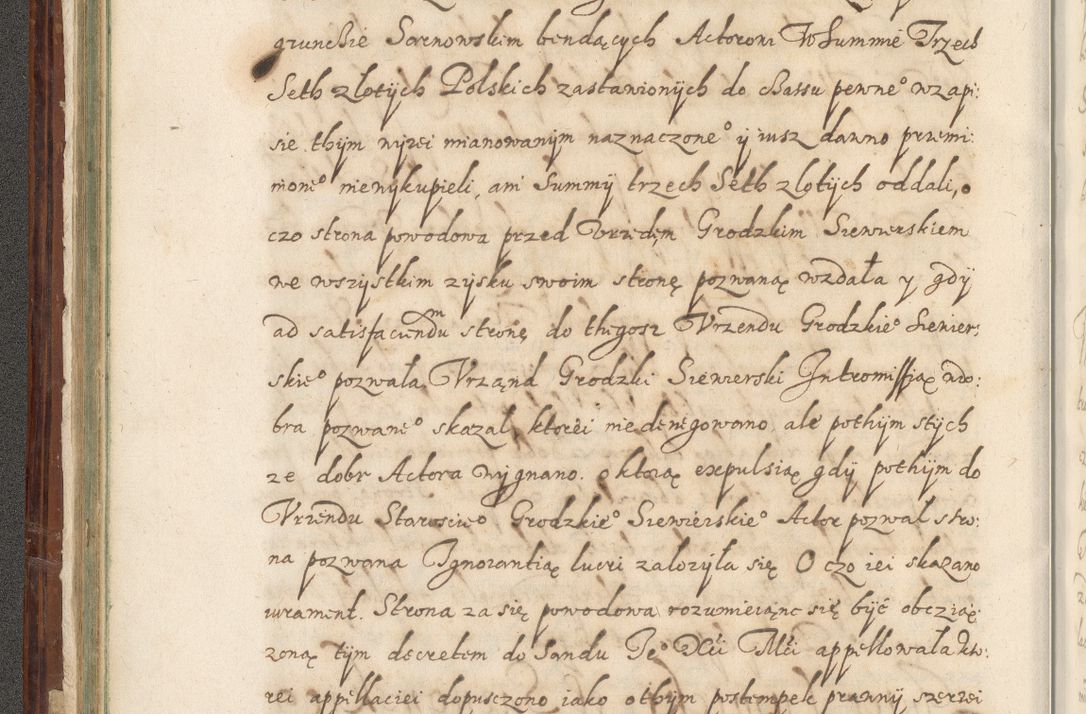 grunckie Sarnowskim bendących Actorom W Summie Trzech
Seth złotÿch Polskich zastawionÿch do chassu pewne° w zapi:
sie thÿm wÿzei mianowanÿm naznaczone° ÿ iusz dawno przemi:
nione° niewÿkupieli, ani Summÿ trzech Seth złotÿch oddali, o
czo strona powodowa przed Vrzedęm Grodzkim Siewierskiem
we wszÿstkim zÿsku swoim stronę pozwaną wzdała y gdÿ
ad satisfaciendum stronę do thegosz Vrzendu Grodzkie° Siewier:
skie° pozwała, Vrząnd Grodzki Siewierski Intromissią w do:
bra pozwane° skazał, ktorei nie denegowano ale pothÿm s tÿch
ze dobr Actora wÿgnano. o ktorą expulsią gdÿ pothÿm do
Vrzendu Staroscie° Grodzkie° Siewierskie° Actor pozwał stro:
na pozwana Ignorantią lucri załozÿła się O czo iei skazano
iurament. Strona za się powodowa rozumieiąnc się bÿć obcziąz:
zoną tÿm decretem do Sandu Je° Xći Mći appellowała kto:
rei appellaciei dopusczono iako o thÿm postempek prawnÿ szerzei